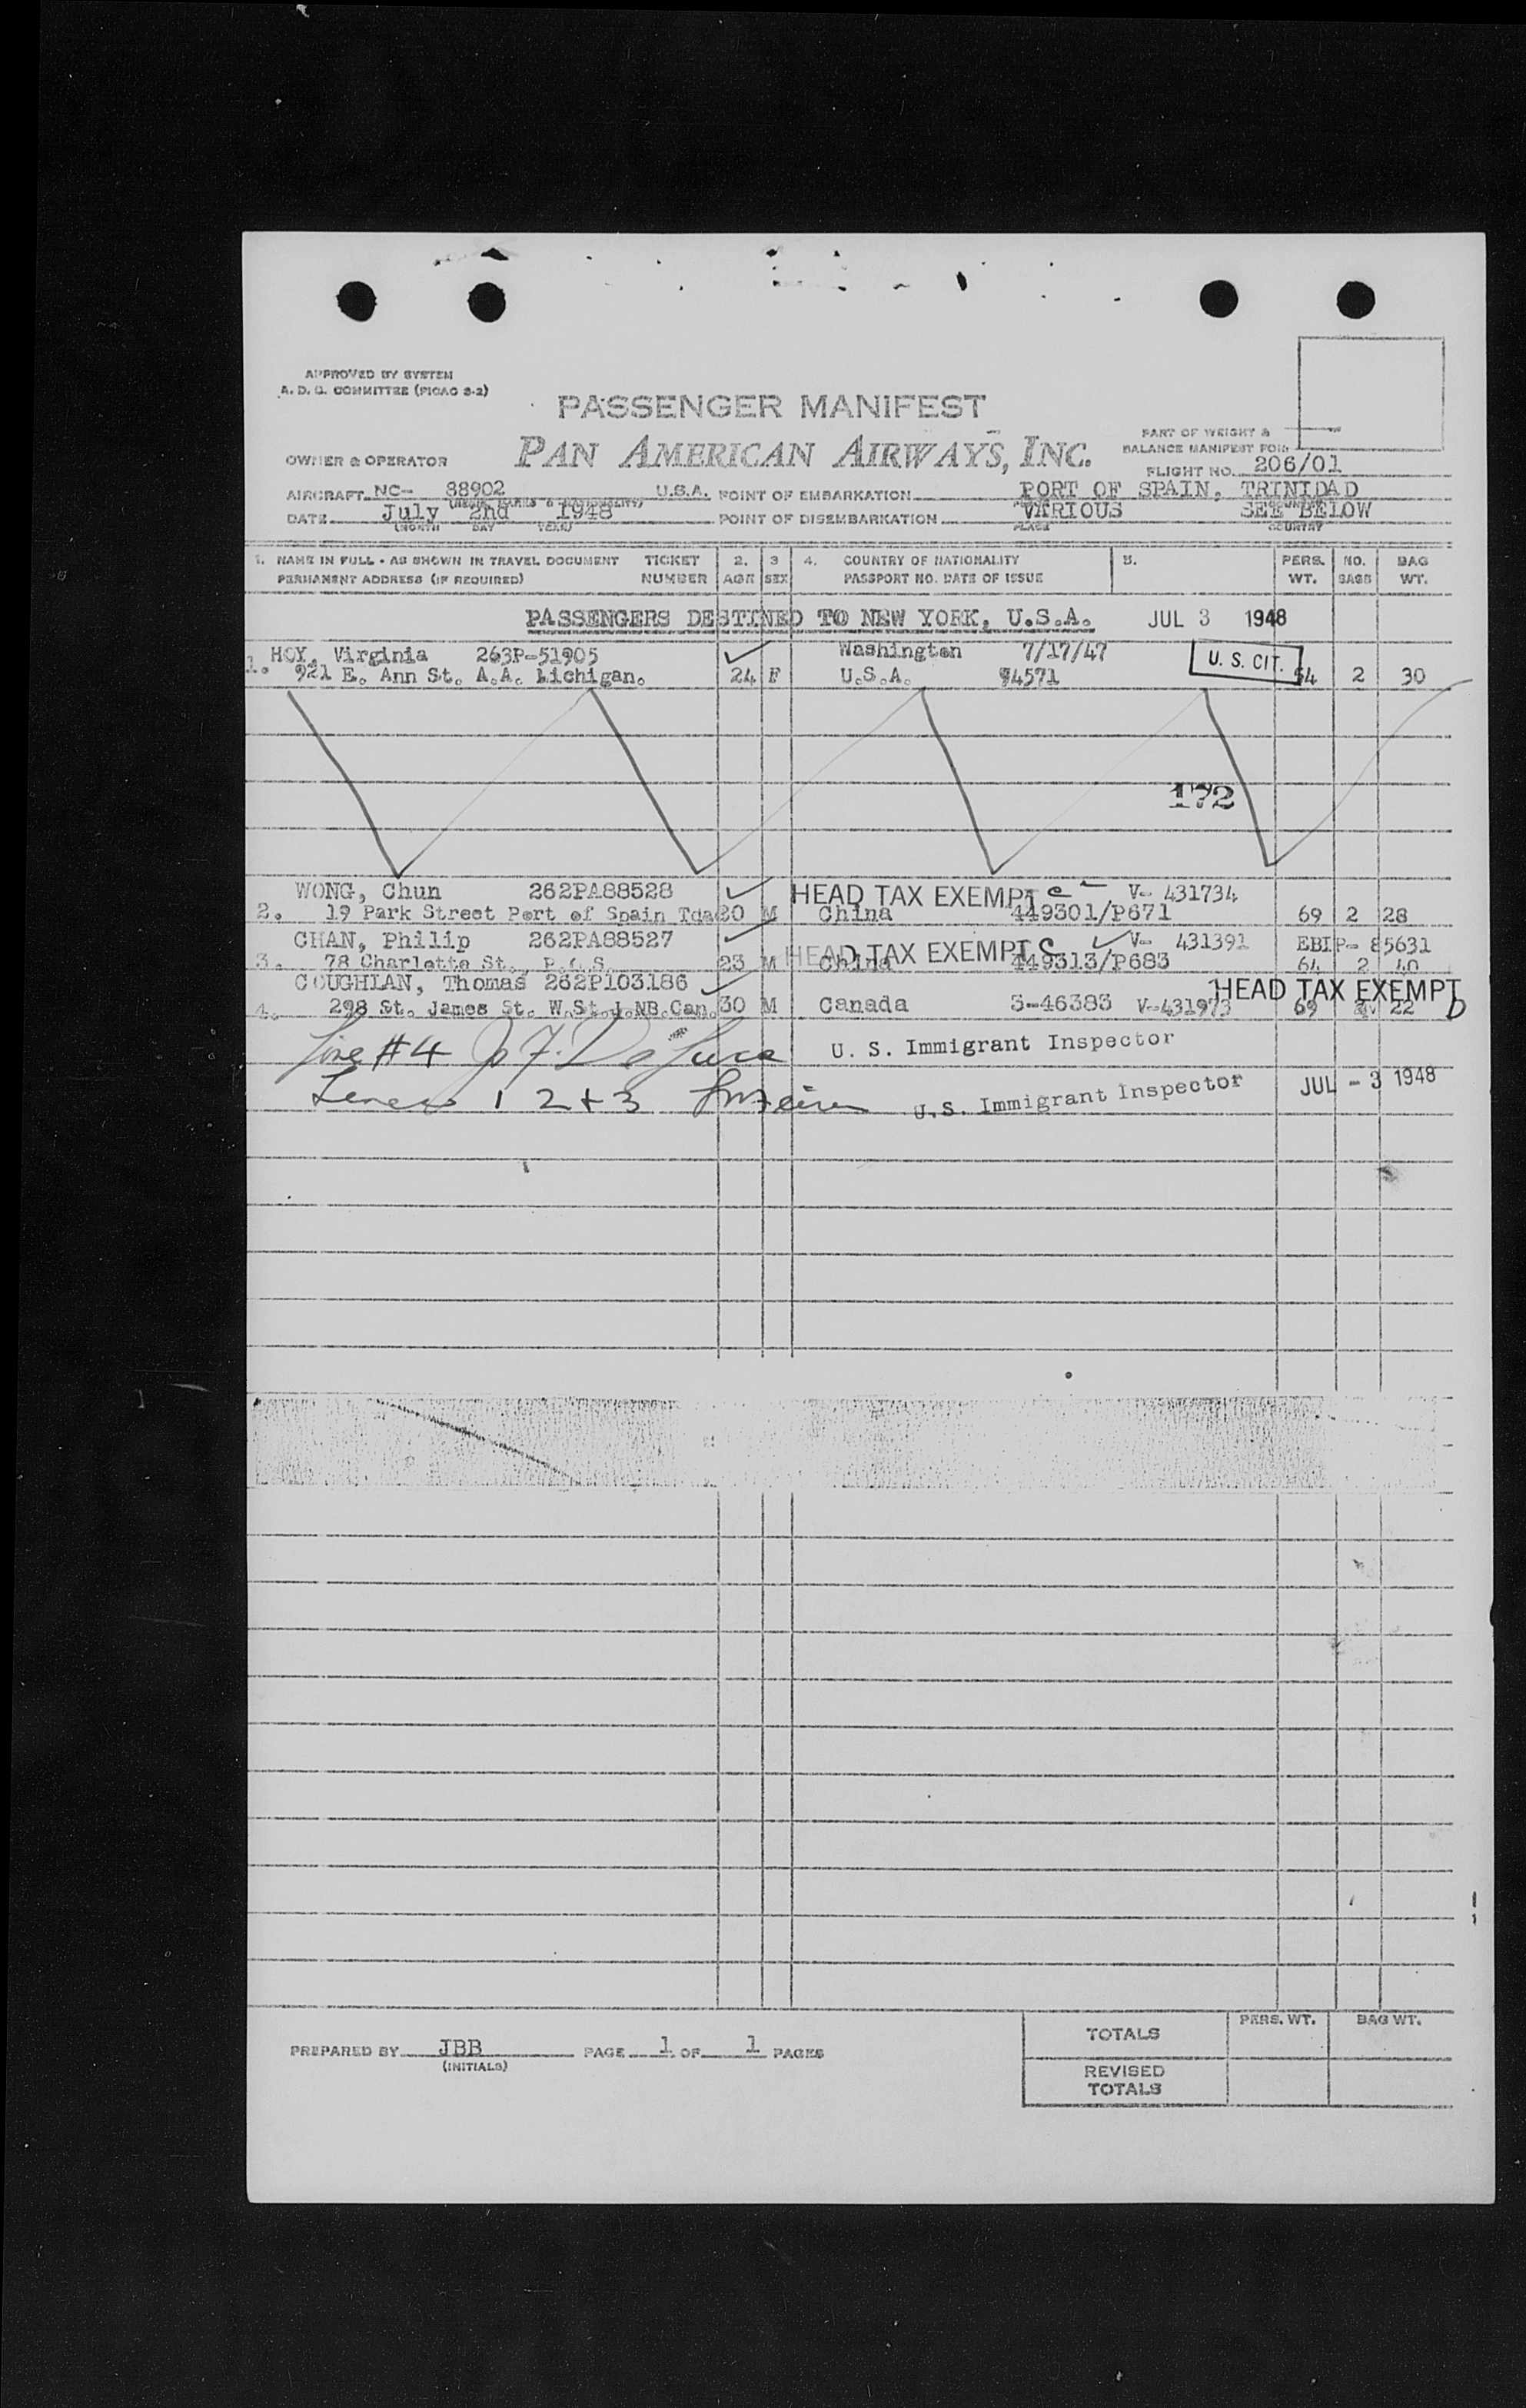 APPROVED BY SYSTEM
A. D. G. COMMITTEE (PICAO S-2)
PASSENGER MANIFEST
PART OF WEIGHT &
BALANCE MANIFEST FOR:
OWNER & OPERATOR PAN AMERICAN AIRWAYS, INC.
FLIGHT NO. 206/01
AIRCRAFT NC- 88902 U.S.A. POINT OF EMBARKATION PORT OF SPAIN, TRINIDAD
DATE July 2nd 1948 POINT OF DISEMBARKATION VARIOUS SEE BELOW
(MONTH DAY YEAR) PLACE COUNTRY
1. NAME IN FULL - AS SHOWN IN TRAVEL DOCUMENT TICKET 2. 3 4. COUNTRY OF NATIONALITY 5. PERS. NO. BAG
PERMANENT ADDRESS (IF REQUIRED) NUMBER AGE SEX PASSPORT NO. DATE OF ISSUE WT. BAGS WT.
PASSENGERS DESTINED TO NEW YORK, U.S.A. JUL 3 1948
HOY, Virginia 263P-51905 Washington 7/17/47 U. S. CIT.
1. 921 E. Ann St. A.A. Lichigan. 24 F U.S.A. 94571 54 2 30
172
WONG, Chun 262PA88528 HEAD TAX EXEMPT V- 431734
2. 19 Park Street Port of Spain Tda 20 M China 449301/P671 69 2 28
CHAN, Philip 262PA88527 HEAD TAX EXEMPT C V- 431391 EBIP- 85631
3. 78 Charlotte St., P.O.S. 23 M China 449313/P683 64 2 40
COUGHLAN, Thomas 262P103186 HEAD TAX EXEMPT
4. 298 St. James St. W.St.J.NB.Can. 30 M Canada 3-46383 V-431973 69 22 D
Line #4 U. S. Immigrant Inspector
Lines 1 2 + 3 U.S. Immigrant Inspector JUL - 3 1948
PREPARED BY JBB PAGE 1 OF 1 PAGES
(INITIALS)
TOTALS PERS. WT. BAG WT.
REVISED
TOTALS